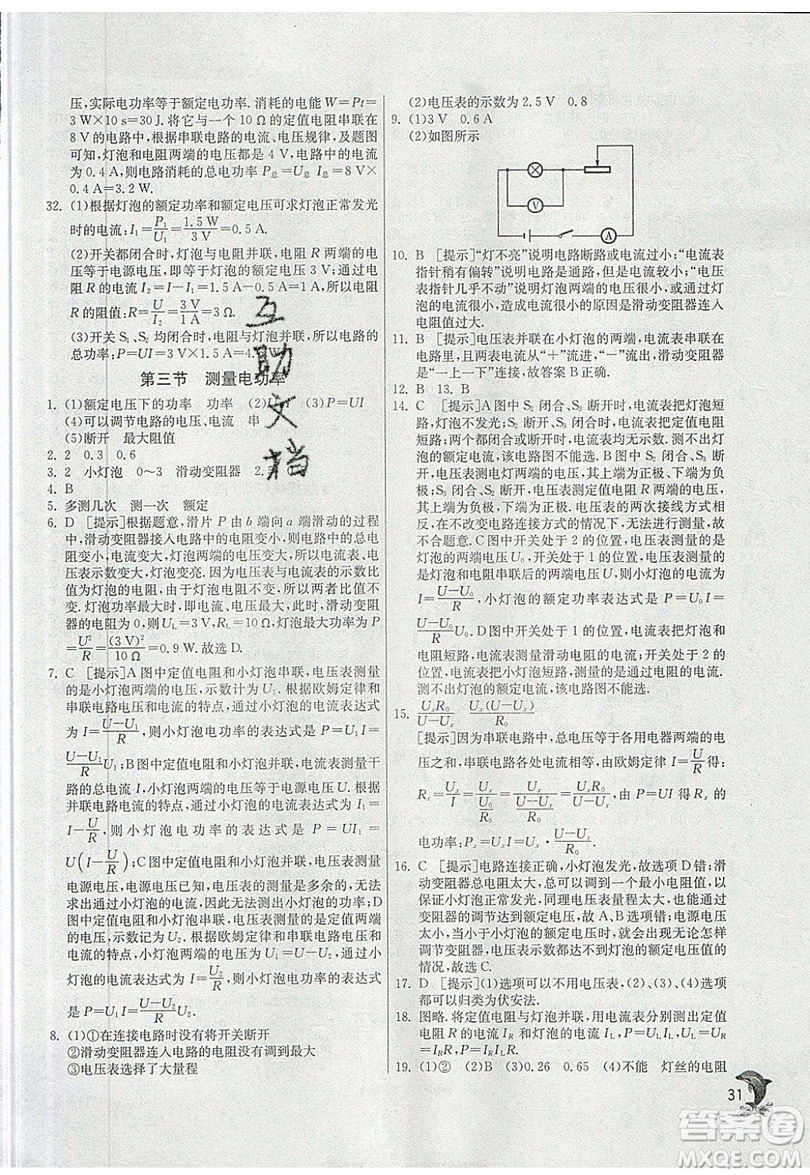 压,实际电功率等于额定电功率. 消耗的电能 W=Pt=
3 W×10 s=30 J. 将它与一个 10 Ω 的定值电阻串联在
8 V 的电路中,根据串联电路的电流、电压规律,及题图
可知,灯泡和电阻两端的电压都是 4 V,电路中的电流
为 0.4 A,则电路消耗的总电功率 P总=U总 I总=8 V×
0.4 A=3.2 W.
32. (1)根据灯泡的额定功率和额定电压可求灯泡正常发光
时的电流:I₁=P₁/U₁=1.5 W/3 V=0.5 A.
(2)开关都闭合时,灯泡与电阻并联,电阻 R 两端的电压
等于电源电压,即等于灯泡的额定电压 3 V;通过电
阻 R 的电流 I₂=I-I₁=1.5 A-0.5 A=1 A. 所以电阻
R 的阻值:R=U/I₂=3 V/1 A=3 Ω.
(3)开关 S₁、S₂ 均闭合时,电阻与灯泡并联,所以电路的
总功率:P=UI=3 V×1.5 A=4.5 W.
第三节 测量电功率
1. (1)额定电压下的功率 功率 (2) (3)P=UI
(4)可以调节电路的电压、电流 串
(5)断开 最大阻值
2. 2 0.3 0.6
3. 2 小灯泡 0~3 滑动变阻器 2.5
4. B
5. 多测几次 测一次 额定
6. D [提示]根据题意,滑片 P 由 b 端向 a 端滑动的过程
中,滑动变阻器接入电路中的电阻变小,则电路中的总电
阻变小,电流变大,灯泡两端的电压变大,所以电流表、电
压表示数变大,灯泡变亮. 因为电压表与电流表的示数比
值为灯泡的电阻,由于灯泡电阻不变,所以该比值不
变. 灯泡功率最大时,即电流、电压最大,此时滑动变阻
器的电阻为 0,所以 UL=3 V,RL=10 Ω,最大功率
P=U²/R=(3 V)²/10 Ω=0.9 W. 故选 D.
7. C [提示]A 图中定值电阻和小灯泡串联,电压表测量
的是小灯泡两端的电压,示数计为 U₁. 根据欧姆定律和
串联电路中电阻和电流的特点,通过小灯泡电流表达式
为 I=(U-U₁)/R,则小灯泡电功率的表达式是 P=U₁I=
U₁(U-U₁)/R;B 图中定值电阻和小灯泡并联,电流表测量干
路的总电流 I,小灯泡两端的电压等于电源电压 U. 根据
并联电路电流的特点,通过小灯泡的电流表达式为 I₁=
I-U/R,则小灯泡电功率的表达式是 P=UI₁=
U(I-U/R);C 图中定值电阻和小灯泡并联,电压表测量
电源电压,电源电压已知,电压表的测量是多余的,无法
求出通过小灯泡的电流,不能测出小灯泡的电功率;D
图中定值电阻和小灯泡串联,电压表测量的是定值两端
的电压,示数记为 U₂. 根据欧姆定律和串联电路中电阻
和电流的特点,小灯泡两端的电压是 U-U₂,电路中通
过小灯泡的电流是 U₂/R,小灯泡电功率的表达式是
P=(U-U₂)U₂/R. 故选 C.
8. (1)①在连接电路时没有将开关断开
②滑动变阻器连入电路的电阻没有调到最大
③电压表选择了大量程
(2)电压表的示数为 2.5 V 0.8
9. (1)3 V 0.6 A
(2)如图所示
V
A
10. B [提示]“灯不亮”说明电路断路或电流过小;“电流表
指针稍有偏转”说明电路是通路,但电流过小,“电压表
指针几乎不动”说明电压很小. 由此可以判断,灯泡发
光的电流很小,造成电流很小的原因是滑动变阻器连入
电阻值过大.
11. B [提示]电压表并联在小灯泡的两端,电流表串联在
电路里,且两表都是电流从“+”流进,“-”流出,滑动变阻
器是“一上一下”连接;故答案 B正确.
12. B 13. B
14. C [提示]A 图中 S₁ 闭合、S₂ 断开时,电流表把灯泡短
路,灯泡不发光;S₂ 闭合、S₁ 断开时,电流表把定值电阻
短路;两个都闭合或都断开时,同样不可以,测不出灯泡
的额定电流. 该电路图不能选. B 图中,S₁ 闭合、S₂ 断开
时,电压表测电灯两端的电压,上端为正极、下端为负
极;S₂ 闭合、S₁ 断开,电压表测量定值电阻 R 两端的电
压,上端为负极、下端为正极. 电压表的两次接线方式相
反,在不改变电路连接方式的情况下,无法进行测量,故
不合题意. C 图中开关处于 2 的位置,电压表测量的是
灯泡的额定电压 U₀,开关处于 1 的位置,电压表测量的
是灯泡和电阻串联后的两端的电压 U,则灯泡的额定电
流 I=(U-U₀)/R,小灯泡额定电功率的表达式为 P=U₀I=
U₀(U-U₀)/R. D 图中开关处于 1 的位置,电流表把灯泡和
电阻短路,电流表测量滑动电阻的电流,开关处于 2 的位
置,电流表测量的是灯泡、电阻和滑动变阻器的电流,测
不出灯泡的额定电流,该电路图不能选.
15. UₓR₀/(U-Uₓ) Uₓ(U-Uₓ)/R₀
[提示]因为串联电路中,总电压等于各用电器两端的电
压之和,串联电路各处电流相等,由欧姆定律 I=U/R得:
Rₓ=Uₓ/I=Uₓ/((U-Uₓ)/R₀)=UₓR₀/(U-Uₓ). 由 P=UI 得 Rₓ 的
电功率:Pₓ=UₓI=Uₓ·(U-Uₓ)/R₀=Uₓ(U-Uₓ)/R₀.
16. C [提示]电路连接正确,小灯泡发光,故选项 D 错;滑
动变阻器总电阻太大,总可以调到一个最小电阻值,以
保证小灯泡正常发光,同理电压表量程太大,总可以由变
阻器的调节达到额定值,故 A、B 选项错;电源电压
太小,当小灯泡的额定电压太大时,就会出现无论怎样
调节变阻器,电压表示数都达不到灯泡的额定电压值的
情况,故选 C.
17. D [提示](1)选项可以不用电压表,(2)、(3)、(4)选项
的共性可以归类为伏安法.
18. 图略. 将定值电阻与灯泡并联,用电流表分别测出定值
电阻 R 的电流 IR 和灯泡的电流 IL,P=ULIL,UL=UR
=IRR,P=IRILR.
19. (1)①② (2)B (3)0.26 0.65 (4)不能 灯丝的电阻
31
互助文档
答案圈
MXQE.COM